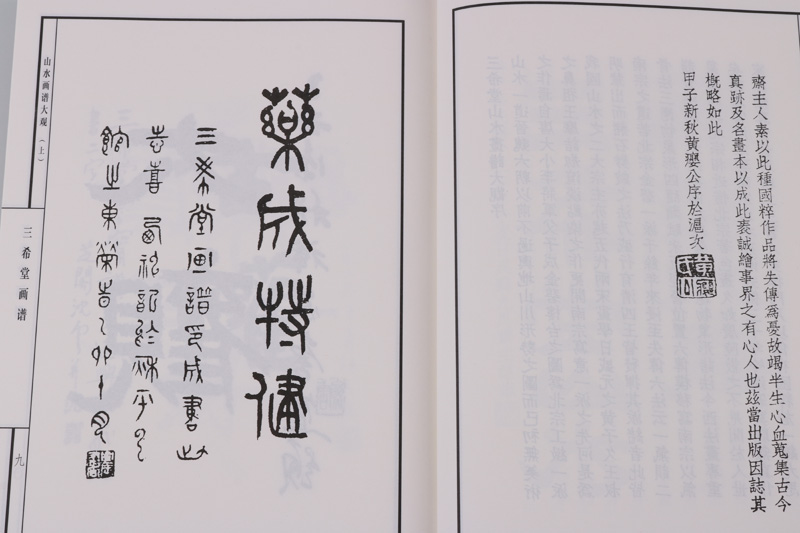 齋主人素以此種國粹作品將失傳為憂故竭半生心血蒐集古今
真跡及名畫本以成此袠誠繪事界之有心人也茲當出版因誌其
概略如此
甲子新秋黃公序於滬次
藥成特健
三希堂画譜印成書此
志喜
館之東榮
山水画谱大观（上）
三希堂画谱
九